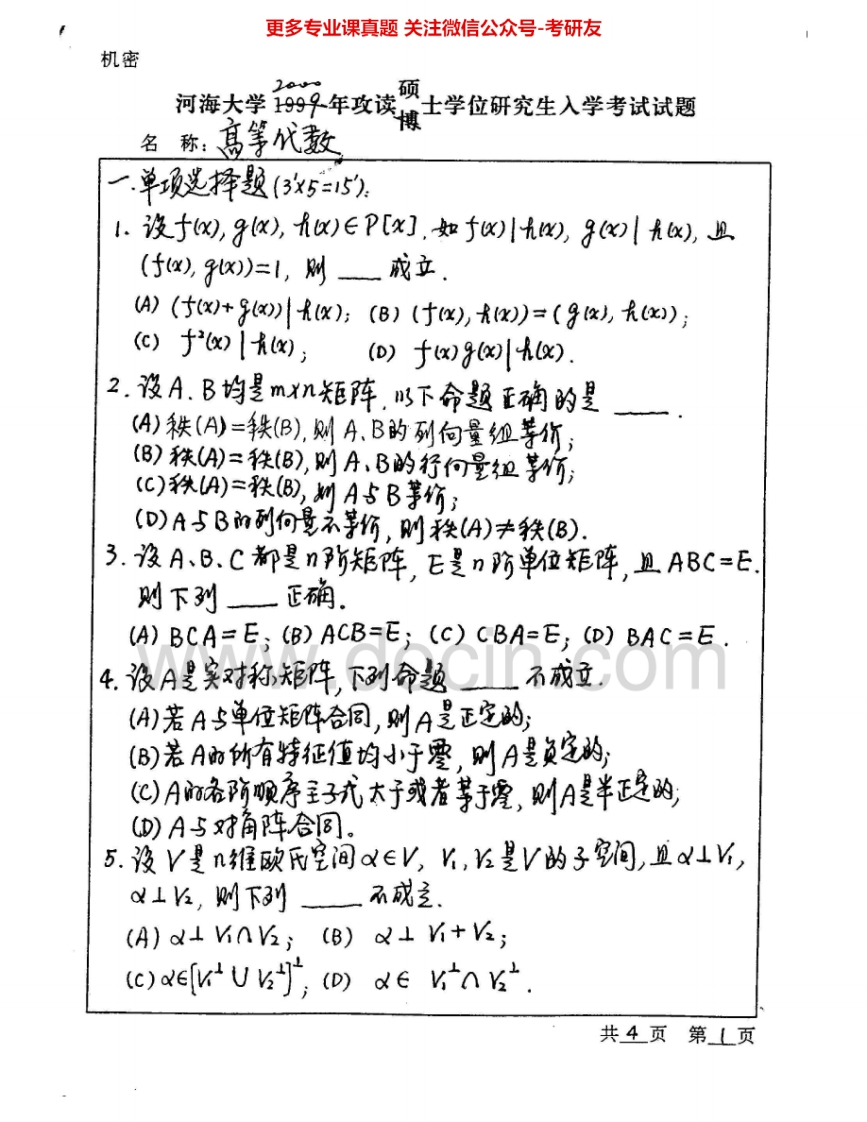 更多专业课真题 关注微信公众号-考研友
机密
2000 硕
河海大学1999年攻读 士学位研究生入学考试试题
博
名 称：高等代数
一.单项选择题(3'x5=15'):
1. 设f(x), g(x), h(x)∈P[x], 如f(x)|h(x), g(x)|h(x), 且
(f(x), g(x))=1, 则 ___ 成立.
(A) (f(x)+g(x))|h(x); (B) (f(x),h(x))=(g(x),h(x));
(C) f²(x)|h(x); (D) f(x)g(x)|h(x).
2. 设A、B均是m×n矩阵, 以下命题正确的是 ___.
(A) 秩(A)=秩(B), 则A、B的列向量组等价;
(B) 秩(A)=秩(B), 则A、B的行向量组等价;
(C) 秩(A)=秩(B), 则A与B等价;
(D) A与B的列向量不等价, 则秩(A)≠秩(B).
3. 设A、B、C都是n阶矩阵, E是n阶单位矩阵, 且ABC=E.
则下列 ___ 正确.
(A) BCA=E; (B) ACB=E; (C) CBA=E; (D) BAC=E.
www.docin.com
4. 设A是实对称矩阵, 下列命题 ___ 不成立.
(A) 若A与单位矩阵合同, 则A是正定的;
(B) 若A的所有特征值均小于零, 则A是负定的;
(C) A的各阶顺序主子式大于或者等于零, 则A是半正定的;
(D) A与对角阵合同。
5. 设V是n维欧氏空间α∈V, V₁,V₂是V的子空间, 且α⊥V₁,
α⊥V₂, 则下列 ___ 不成立.
(A) α⊥V₁∩V₂; (B) α⊥V₁+V₂;
(C) α∈[V₁^⊥∪V₂^⊥]^⊥; (D) α∈V₁^⊥∩V₂^⊥.
共 4 页 第 1 页